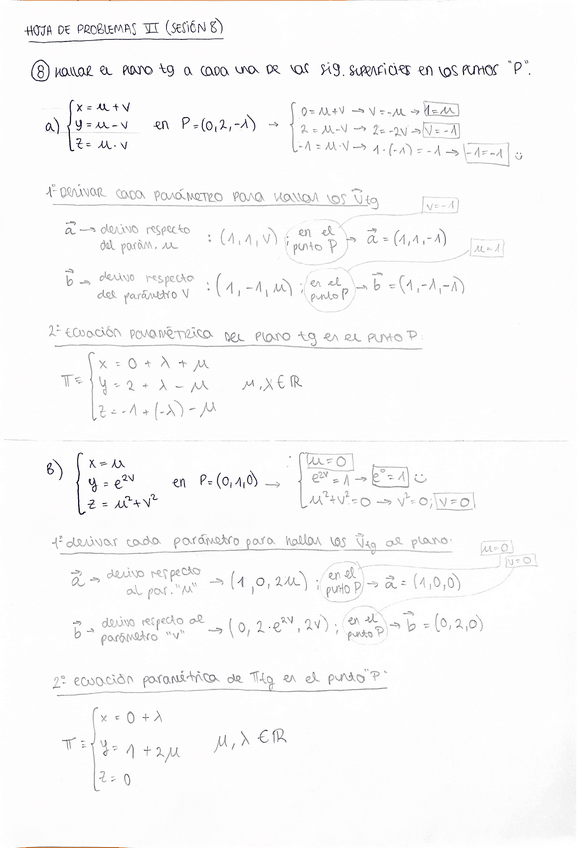 HOJA DE PROBLEMAS VI (SESIÓN 8)
⑧ HALLAR EL PLANO tg A CADA UNA DE LAS SIG. SUPERFICIES EN LOS PUNTOS "P".
a) { x = μ + v
y = μ - v
z = μ · v
en P = (0, 2, -1) →
{ 0 = μ + v → v = -μ → 1 = μ
2 = μ - v → 2 = -2v → v = -1
-1 = μ · v → 1 · (-1) = -1 → -1 = -1 ☺
1º DERIVAR CADA PARÁMETRO PARA HALLAR LOS v⃗tg
v = -1
a⃗ → derivo respecto del parám. μ : (1, 1, v) ; en el punto P → a⃗ = (1, 1, -1)
μ = 1
b⃗ → derivo respecto del parámetro v : (1, -1, μ) ; en el punto P → b⃗ = (1, -1, -1)
2º ECUACIÓN PARAMÉTRICA DEL PLANO tg EN EL PUNTO P.
π ≡ { x = 0 + λ + μ
y = 2 + λ - μ
z = -1 + (-λ) - μ
μ, λ ∈ ℝ
B) { x = μ
y = e^2v
z = μ² + v²
en P = (0, 1, 0) →
{ μ = 0
e^2v = 1 → e^0 = 1 ☺
μ² + v² = 0 → v² = 0; v = 0
1º derivar cada parámetro para hallar los v⃗tg al plano.
μ = 0
v = 0
a⃗ → derivo respecto al par. "μ" → (1, 0, 2μ) ; en el punto P → a⃗ = (1, 0, 0)
b⃗ → derivo respecto al parámetro "v" → (0, 2·e^2v, 2v) ; en el punto P → b⃗ = (0, 2, 0)
2º ecuación paramétrica de πtg en el punto "P".
π ≡ { x = 0 + λ
y = 1 + 2μ
z = 0
μ, λ ∈ ℝ